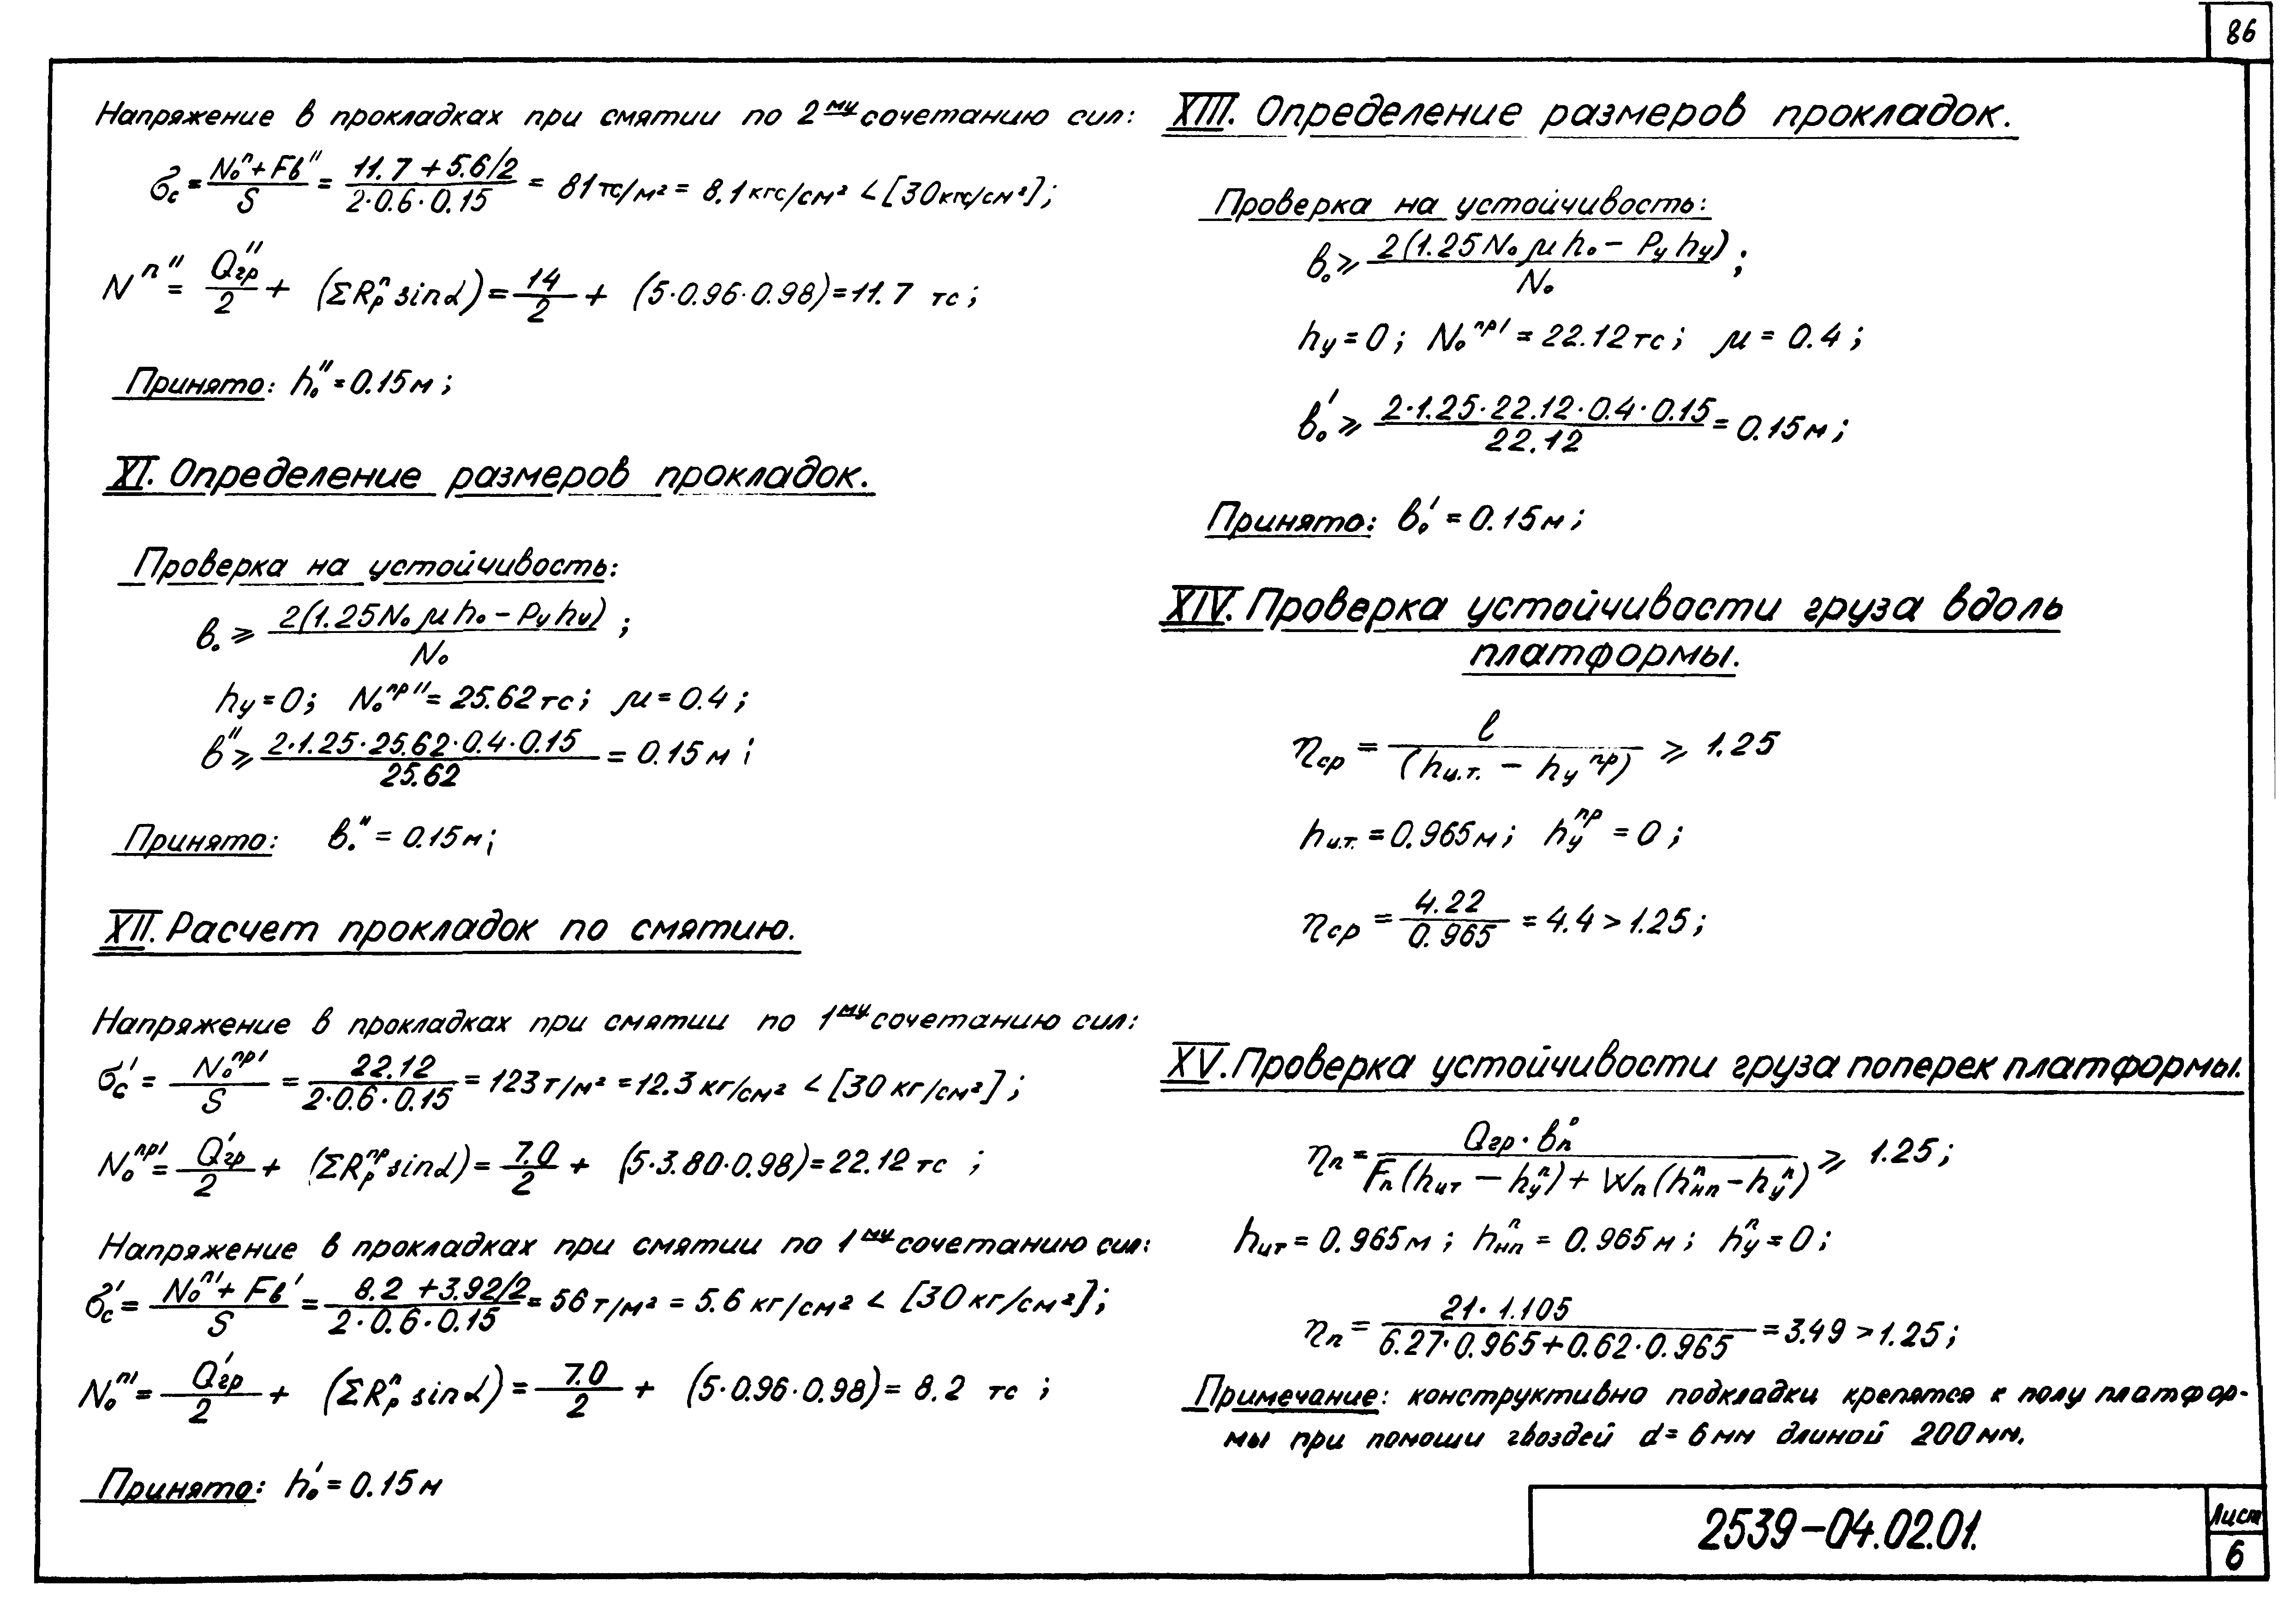 86
Напряжение в прокладках при смятии по 2му сочетанию сил:
σc = (N₀ⁿ + Fв″)/S = (11.7 + 5.6/2)/(2·0.6·0.15) = 81 тс/м² = 8.1 кгс/см² < [30 кгс/см²];
Nⁿ″ = Q″гр/2 + (ΣRₚⁿ sinα) = 14/2 + (5·0.96·0.98) = 11.7 тс;
Принято: h₀″ = 0.15 м;
XI. Определение размеров прокладок.
Проверка на устойчивость:
в₀ ⩾ 2(1.25N₀ μ h₀ – Pу hу)/N₀ ;
hу = 0; N₀ᵖʳ″ = 25.62 тс; μ = 0.4;
в″ ⩾ 2·1.25·25.62·0.4·0.15/25.62 = 0.15 м;
Принято: в₀″ = 0.15 м;
XII. Расчет прокладок по смятию.
Напряжение в прокладках при смятии по 1му сочетанию сил:
σc′ = N₀пр′/S = 22.12/(2·0.6·0.15) = 123 т/м² = 12.3 кг/см² < [30 кг/см²];
N₀пр′ = Q′гр/2 + (ΣRₚпр sinα) = 7.0/2 + (5·3.80·0.98) = 22.12 тс ;
Напряжение в прокладках при смятии по 1му сочетанию сил:
σc′ = (N₀п′ + Fв′)/S = (8.2 + 3.92/2)/(2·0.6·0.15) = 56 т/м² = 5.6 кг/см² < [30 кг/см²];
N₀п′ = Q′гр/2 + (ΣRₚп sinα) = 7.0/2 + (5·0.96·0.98) = 8.2 тс ;
Принято: h₀′ = 0.15 м
XIII. Определение размеров прокладок.
Проверка на устойчивость:
в₀ ⩾ 2(1.25N₀ μ h₀ – Pу hу)/N₀ ;
hу = 0; N₀пр′ = 22.12 тс; μ = 0.4;
в₀′ ⩾ 2·1.25·22.12·0.4·0.15/22.12 = 0.15 м;
Принято: в₀′ = 0.15 м;
XIV. Проверка устойчивости груза вдоль
платформы.
ηср = l/(hц.т. – hупр) ⩾ 1.25
hц.т. = 0.965 м; hупр = 0;
ηср = 4.22/0.965 = 4.4 > 1.25;
XV. Проверка устойчивости груза поперек платформы.
ηп = Qгр·вп°/(Fп(hцт – hуп) + Wп(hнпп – hуп)) ⩾ 1.25;
hцт = 0.965 м; hнпп = 0.965 м; hуп = 0;
ηп = 21·1.105/(6.27·0.965+0.62·0.965) = 3.49 > 1.25;
Примечание: конструктивно подкладки крепятся к полу платфор-
мы при помощи гвоздей d = 6 мм длиной 200 мм.
2539–04.02.01.
Лист
6